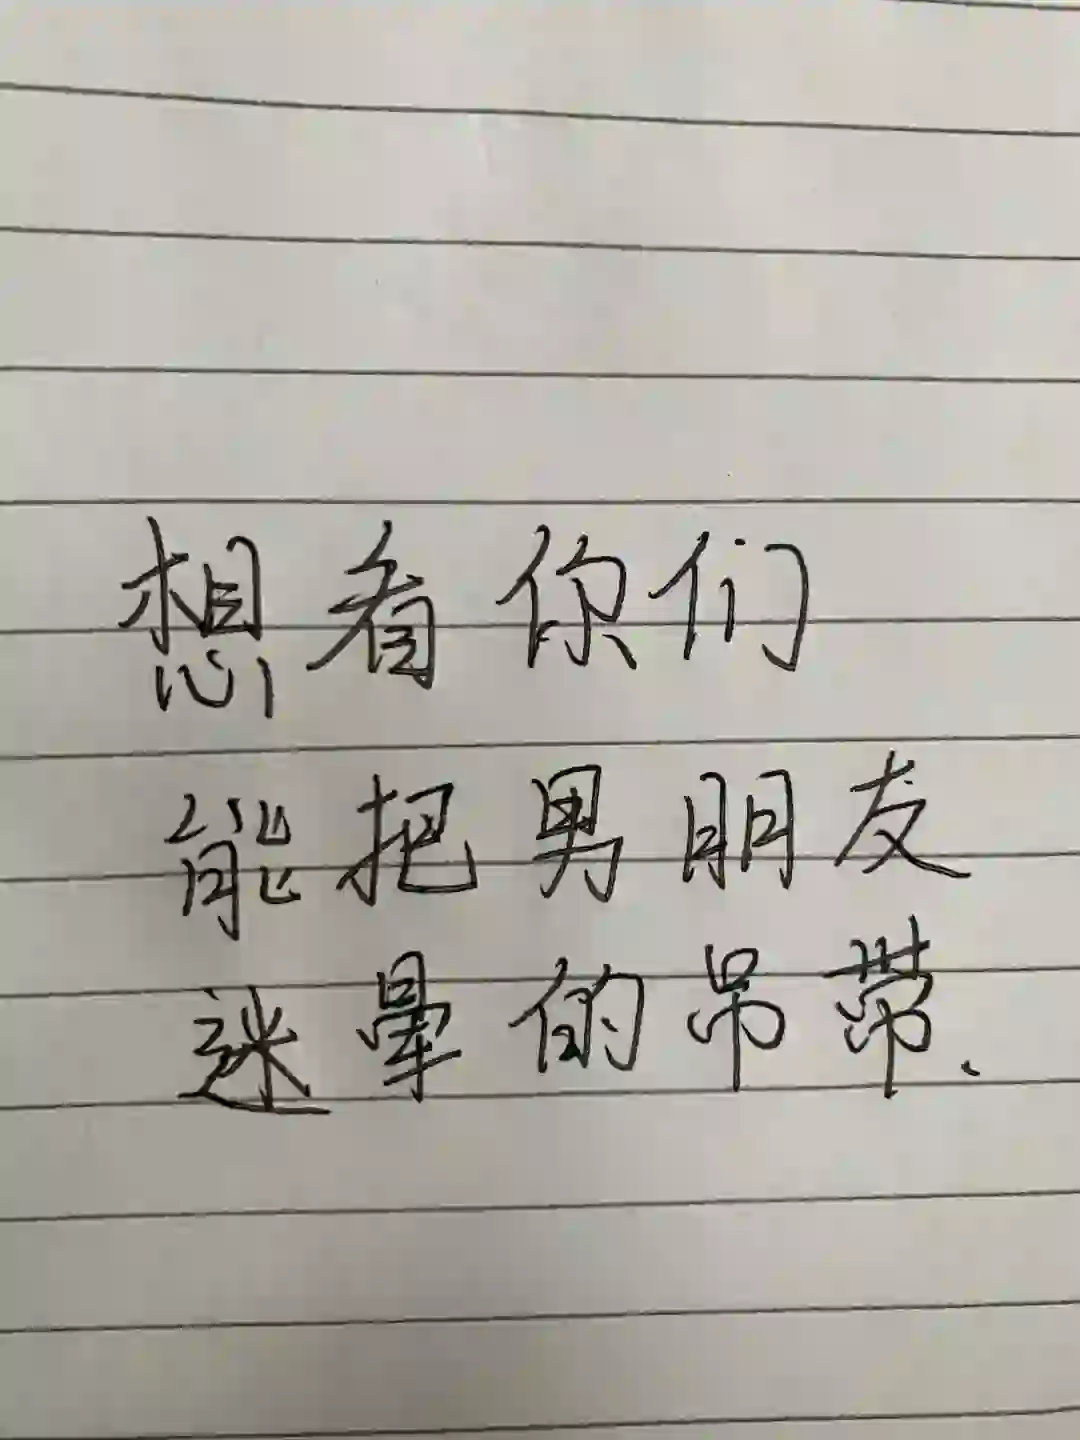 想看你们
能把男朋友
迷晕的吊带.